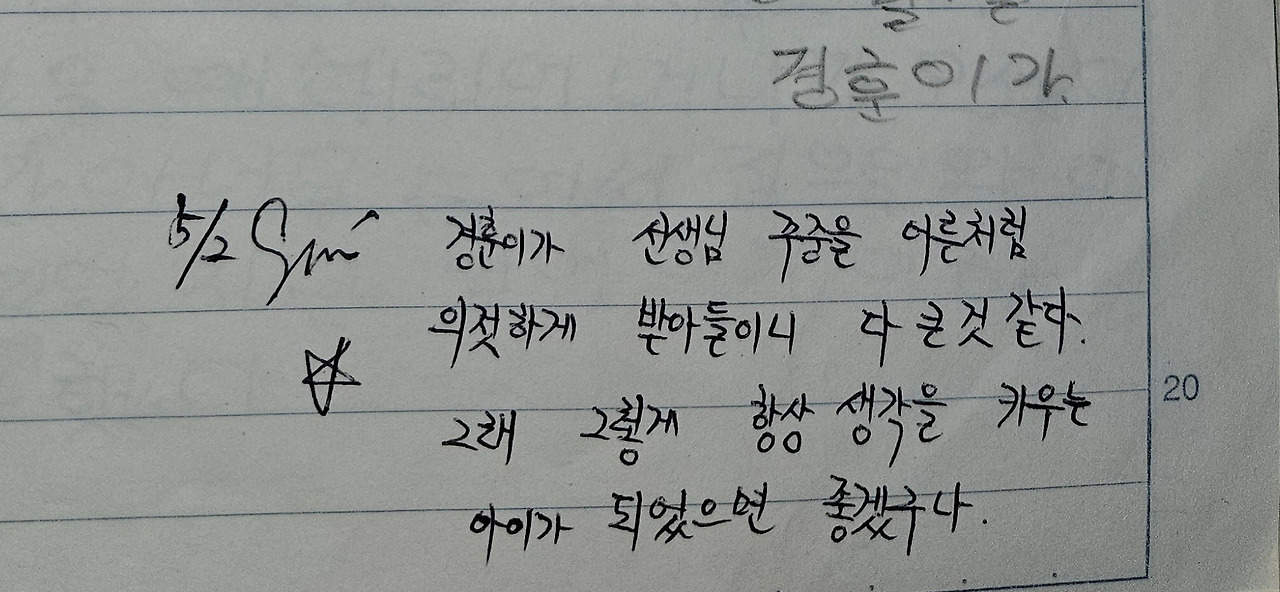 경훈이가
5/2 경훈이가 선생님 주중을 어른처럼
의젓하게 받아들이니 다 큰것 같다.
그래 그렇게 항상 생각을 키우는
20
아이가 되었으면 좋겠구나.